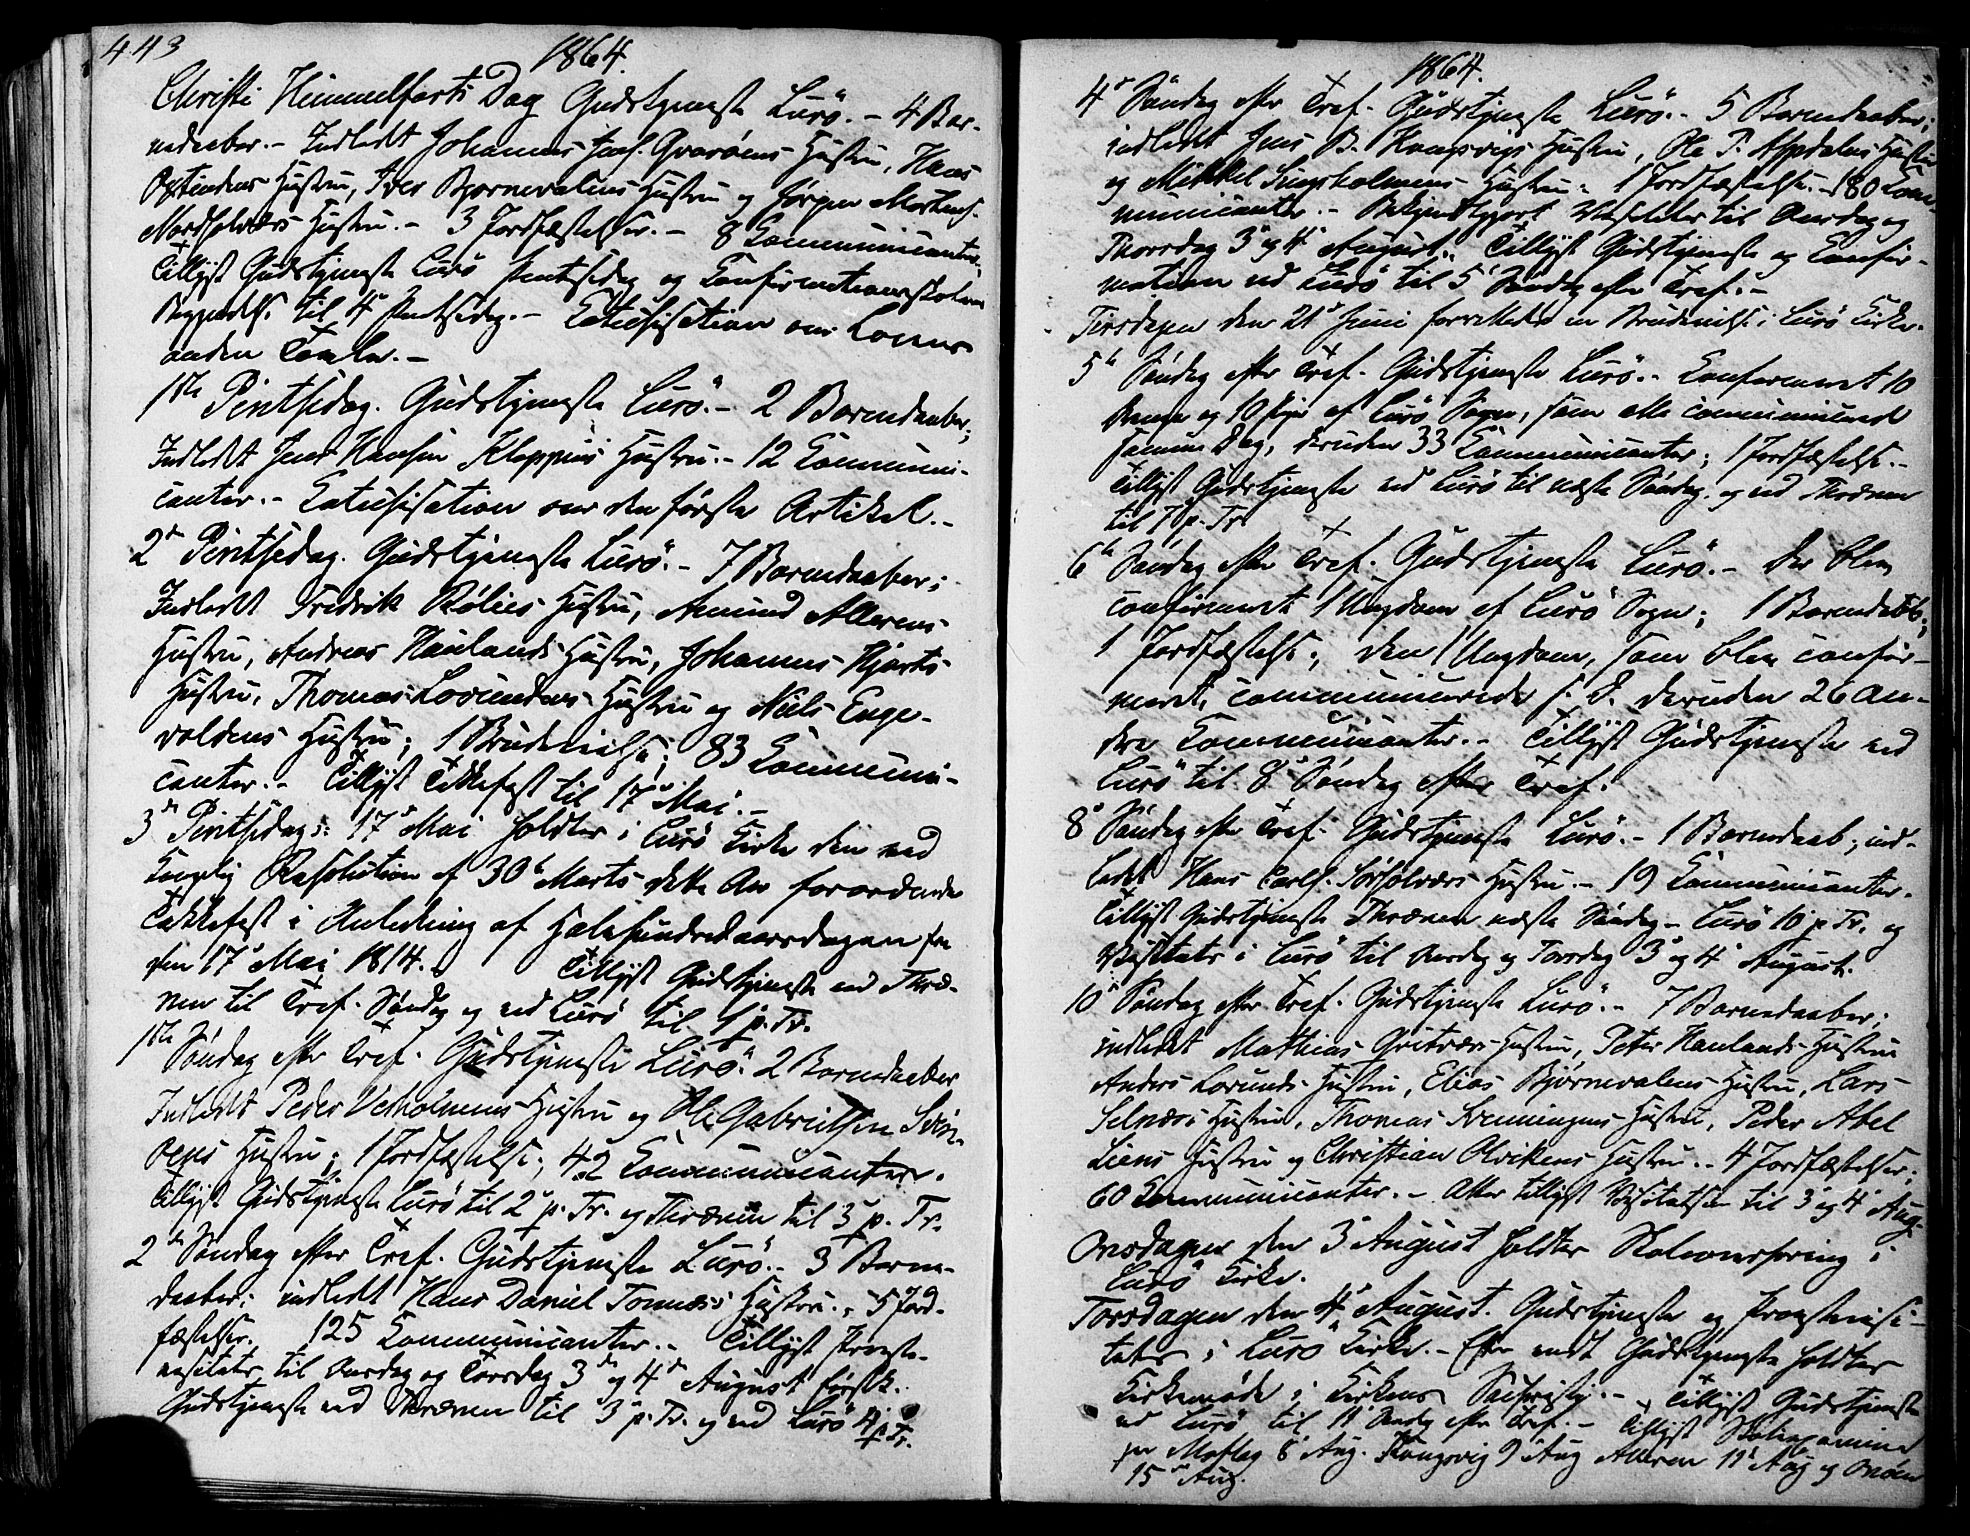 443
1864.
Christi Himmelfarts Dag Gudstjeneste Lurö. - 4 Bar-
nedaaber. - Indledt Johannes Jac. Qvarøens Hustru, Hans
Hustru, Iver Bjørnevalens Hustru og Jørgen Mortens.
Nordsolværs Hustru. - 3 Jordfæstelser. - 8 Communicanter.
Tillyst Gudstjeneste Lurö Pintsedag og Confirmationsskolens
Begyndelse til 4de Pintsedag. - Catechisation over Lovens
anden Tavle. -
1ste Pintsedag. Gudstjeneste Lurö. - 2 Barnedaaber;
Indledt Jens Hansen Kleppens Hustru. - 12 Communi-
canter. - Catechisation over den første Artikel. -
2den Pintsedag. Gudstjeneste Lurö. - 7 Barnedaaber;
Indledt Fredrik Røliens Hustru, Amund Alderens
Hustru, Andreas Haulands Hustru, Johannes Hjarts
Hustru, Thomas Lovundens Hustru og Niels Enge-
voldens Hustru; 1 Brudevielse; 83 Communi-
canter. - Tillyst Takkefest til 17de Mai. -
3die Pintsedag: 17de Mai holdtes i Lurö Kirke den ved
Kongelig Resolution af 30te Marts dette Aar forordnede
Takkefest i Anledning af Halvhundredaarsdagen fra
den 17de Mai 1814. - Tillyst Gudstjeneste ved Thræ-
nen til Tref. Søndag og ved Lurö til 1 p. Tr.
1ste Søndag efter Tref. Gudstjeneste Lurö. 2 Barnedaaber
Indledt Peder Vesholmens Hustru og Ole Gabrielsen
Hustru; 1 Jordfæstelse; 42 Communicanter.
Tillyst Gudstjeneste Lurö til 2 p. Tr. og Thrænen til 3 p. Tr.
2den Søndag efter Tref. Gudstjeneste Lurö. - 3 Barne-
daaber; indledt Hans Daniel Tonnæs Hustru. - 5 Jord-
fæstelser. 125 Communicanter. - Tillyst Provste-
visitats til Onsdag og Torsdag 3de og 4de August førstk.
Gudstjeneste ved Thrænen til 3 p. Tr. og ved Lurö 4 p. Tr.
1864.
4de Søndag efter Tref. Gudstjeneste Lurö. - 5 Barnedaaber;
indledt Jens B. Kongsvigs Hustru, Ole P. Aspdalens Hustru
og Mikkel Lyngholmens Hustru. 1 Jordfæstelse. - 180 Com-
municanter. - Bekjendtgjort Visitats til Onsdag og
Thorsdag 3de og 4de August. Tillyst Gudstjeneste og Confir-
mation ved Lurö til 5te Søndag efter Tref. -
Tirsdagen den 21de Juni forrettedes en Brudevielse i Lurö Kirke.
5te Søndag efter Tref. Gudstjeneste Lurö. - Confirmeret 10
Drenge og 10 Piger af Lurö Sogn, som alle communicerede
samme Dag, desuden 33 Communicanter; 1 Jordfæstelse. -
Tillyst Gudstjeneste ved Lurö til næste Søndag og ved Thrænen
til 7 p. Tr.
6te Søndag efter Tref. Gudstjeneste Lurö. - Der blev
confirmeret 1 Ungdom af Lurö Sogn; 1 Barnedaab;
1 Jordfæstelse; den 1 Ungdom, som blev confir-
meret, communicerede s. D. desuden 26 an-
dre Communicanter. - Tillyst Gudstjeneste ved
Lurö til 8de Søndag efter Tref.
8de Søndag efter Tref. Gudstjeneste Lurö. - 1 Barnedaab; ind-
ledet Hans Carls. Sørsolværs Hustru. - 19 Communicanter.
Tillyst Gudstjeneste Thrænen næste Søndag - Lurö 10 p. Tr. og
Visitats i Lurö til Onsdag og Torsdag 3de og 4de August.
10de Søndag efter Tref. Gudstjeneste Lurö. - 7 Barnedaaber;
indledet Mathias Gritværs Hustru, Peter Haulands Hustru
Anders Lovunds Hustru, Elias Bjørnevalens Hustru, Lars
Selnæs Hustru, Thomas Svenningens Hustru, Peder Abel
Liens Hustru og Christian Olvikens Hustru. - 4 Jordfæstelser;
60 Communicanter. - Atter tillyst Visitatsen til 3de og 4de Aug.
Onsdagen den 3de August holdtes Skoleoverhøring i
Lurö Kirke.
Torsdagen den 4de August. Gudstjeneste og Provstevisi-
tats i Lurö Kirke. - Efter endt Gudstjeneste holdtes
Kirkemøde i Kirkens Sacristi. - Tillyst Gudstjeneste
ved Lurö til 11te Søndag efter Tref. - Tillyst Skoleexamina
paa Moflag 8de Aug. Kongsvig 9de Aug Alderen 11te Aug og Onøen
15de Aug.